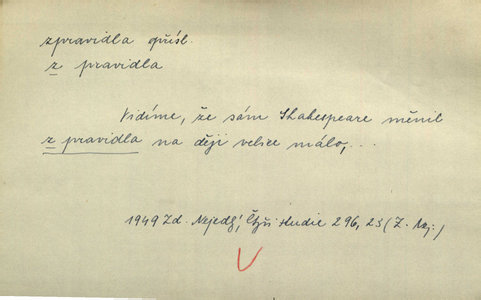 zpravidla přísl.
z pravidla
Vidíme, že sám Shakespeare měnil
z pravidla na ději velice málo, ...
1949 Zd. Nejedlý, Čtyři studie 296, 23 (Z. Nej.)